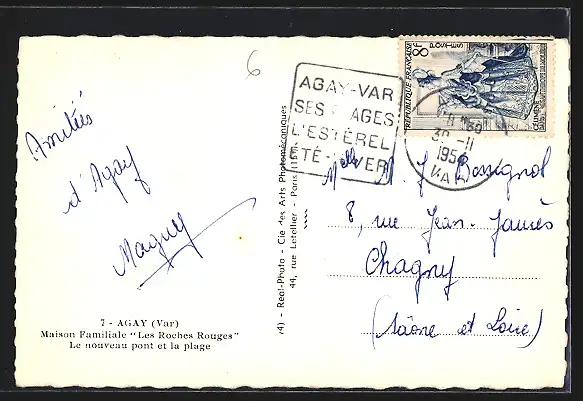 6
Amitiés
d'Agay
Maguy
7 - AGAY (Var)
Maison Familiale "Les Roches Rouges"
Le nouveau pont et la plage
74) - Real-Photo - Cie des Arts Photomécaniques
44, rue Letellier - Paris (15
AGAY-VAR
SES PLAGES
L'ESTÉREL
ÉTÉ-HIVER
8F
POSTES
REPUBLIQUE FRANÇAISE
30 -11
VAR
Melle J Bossignol
8, rue Jean-Jaurès
Chagny
(Saône et Loire)